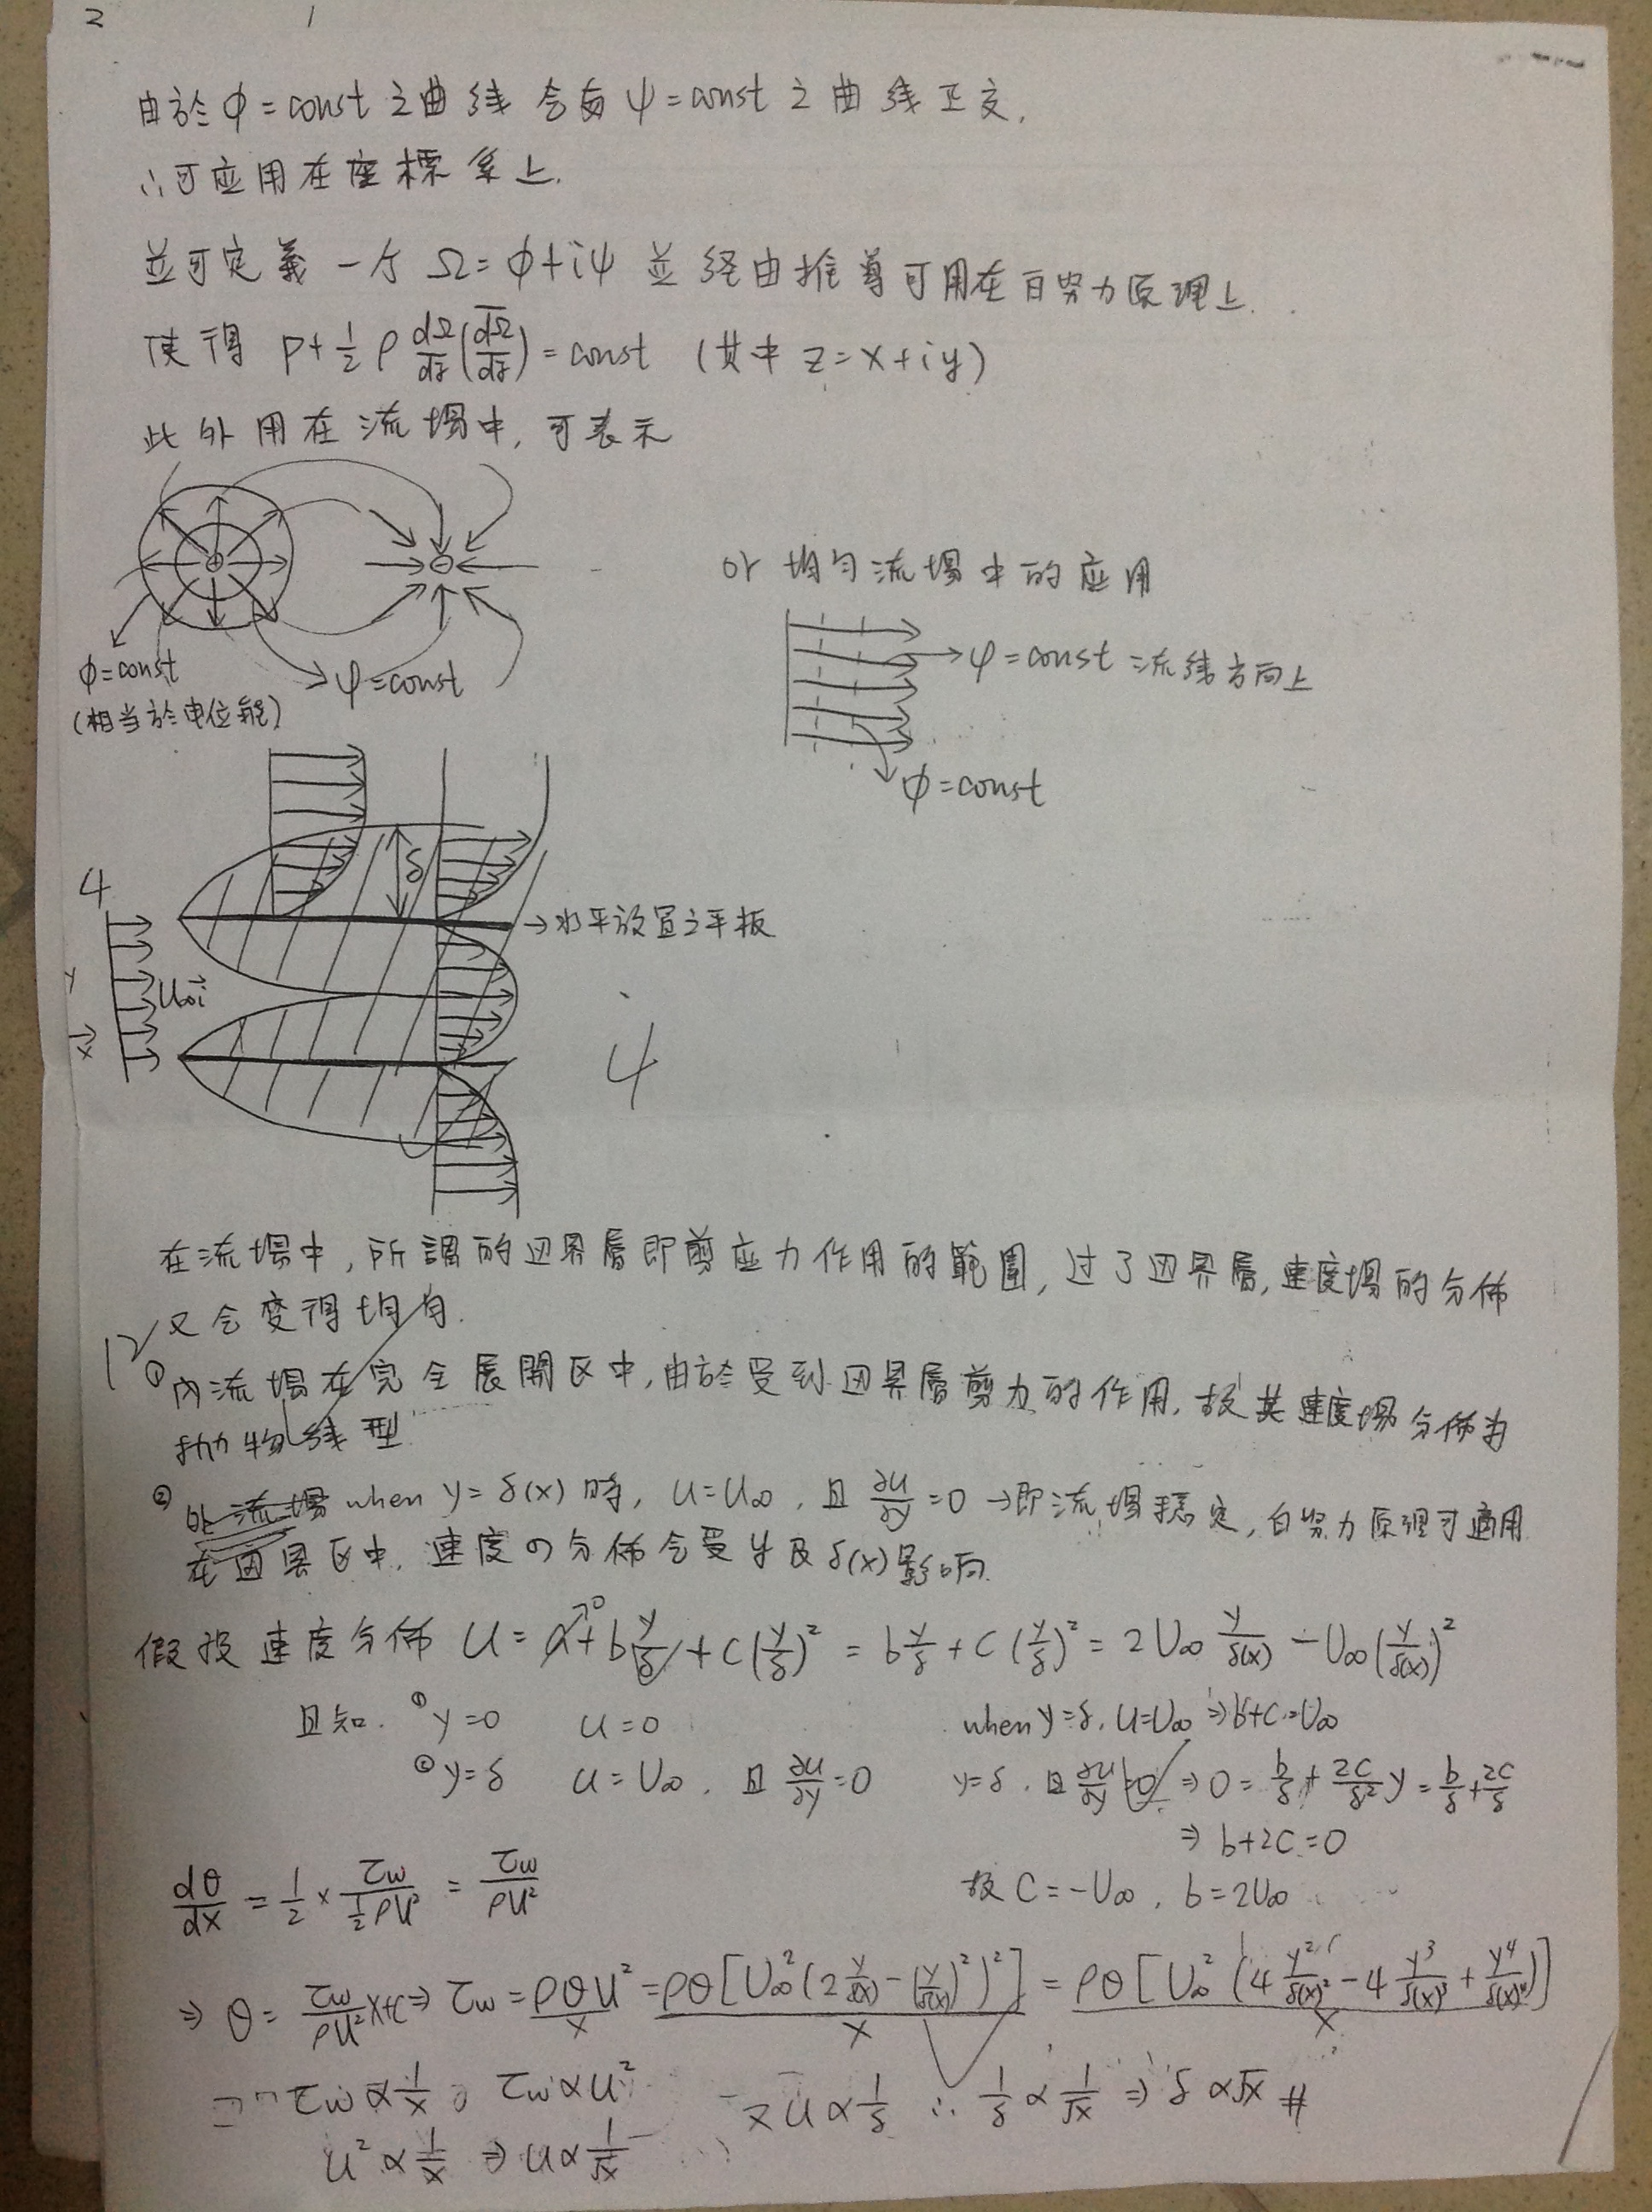 2 1
由於 φ = const 之曲线会与 ψ = const 之曲线正交,
∴可应用在座標系上.
並可定義一个 Ω = φ + iψ 並経由推導可用在白努力原理上.
使得 P + 1/2 ρ dΩ/dz (dΩ/dz)‾ = const (其中 z = x + iy)
此外用在流場中, 可表示
or 均匀流場中的应用
φ = const
(相当於电位能)
ψ = const
ψ = const 流线方向上
φ = const
δ
4
→水平放置之平板
y
U∞i
x
4
在流場中, 所謂的边界層即剪应力作用的範圍, 过了边界層, 速度場的分佈
又会变得均匀.
12
① 內流場在完全展開区中, 由於受到边界層剪力的作用, 故其速度場分佈为
拋物线型
② 外流場 when y = δ(x) 時, u = U∞, 且 ∂u/∂y = 0 →即流場穩定, 白努力原理可適用
在边界区中, 速度の分佈会受 y 及 δ(x) 影响.
假設速度分佈 u = a→0 + b y/δ + c (y/δ)² = b y/δ + c (y/δ)² = 2U∞ y/δ(x) − U∞ (y/δ(x))²
且知. ① y = 0 u = 0 when y = δ, u = U∞ ⇒ b + c = U∞
② y = δ u = U∞, 且 ∂u/∂y = 0 y = δ, 且 ∂u/∂y = 0 ⇒ 0 = b/δ + 2c/δ² y = b/δ + 2c/δ
⇒ b + 2c = 0
故 c = −U∞, b = 2U∞
dθ/dx = 1/2 × τw/(1/2 ρU²) = τw/ρU²
⇒ θ = τw/ρU² x + c ⇒ τw = ρθu²/x = ρθ[U∞²(2 y/δ(x) − (y/δ(x))²)²]/x = ρθ[U∞²(4 y²/δ(x)² − 4 y³/δ(x)³ + y⁴/δ(x)⁴)]/x
τw ∝ 1/x, τw ∝ u²
u² ∝ 1/x ⇒ u ∝ 1/√x
又 u ∝ 1/δ ∴ 1/δ ∝ 1/√x ⇒ δ ∝ √x #